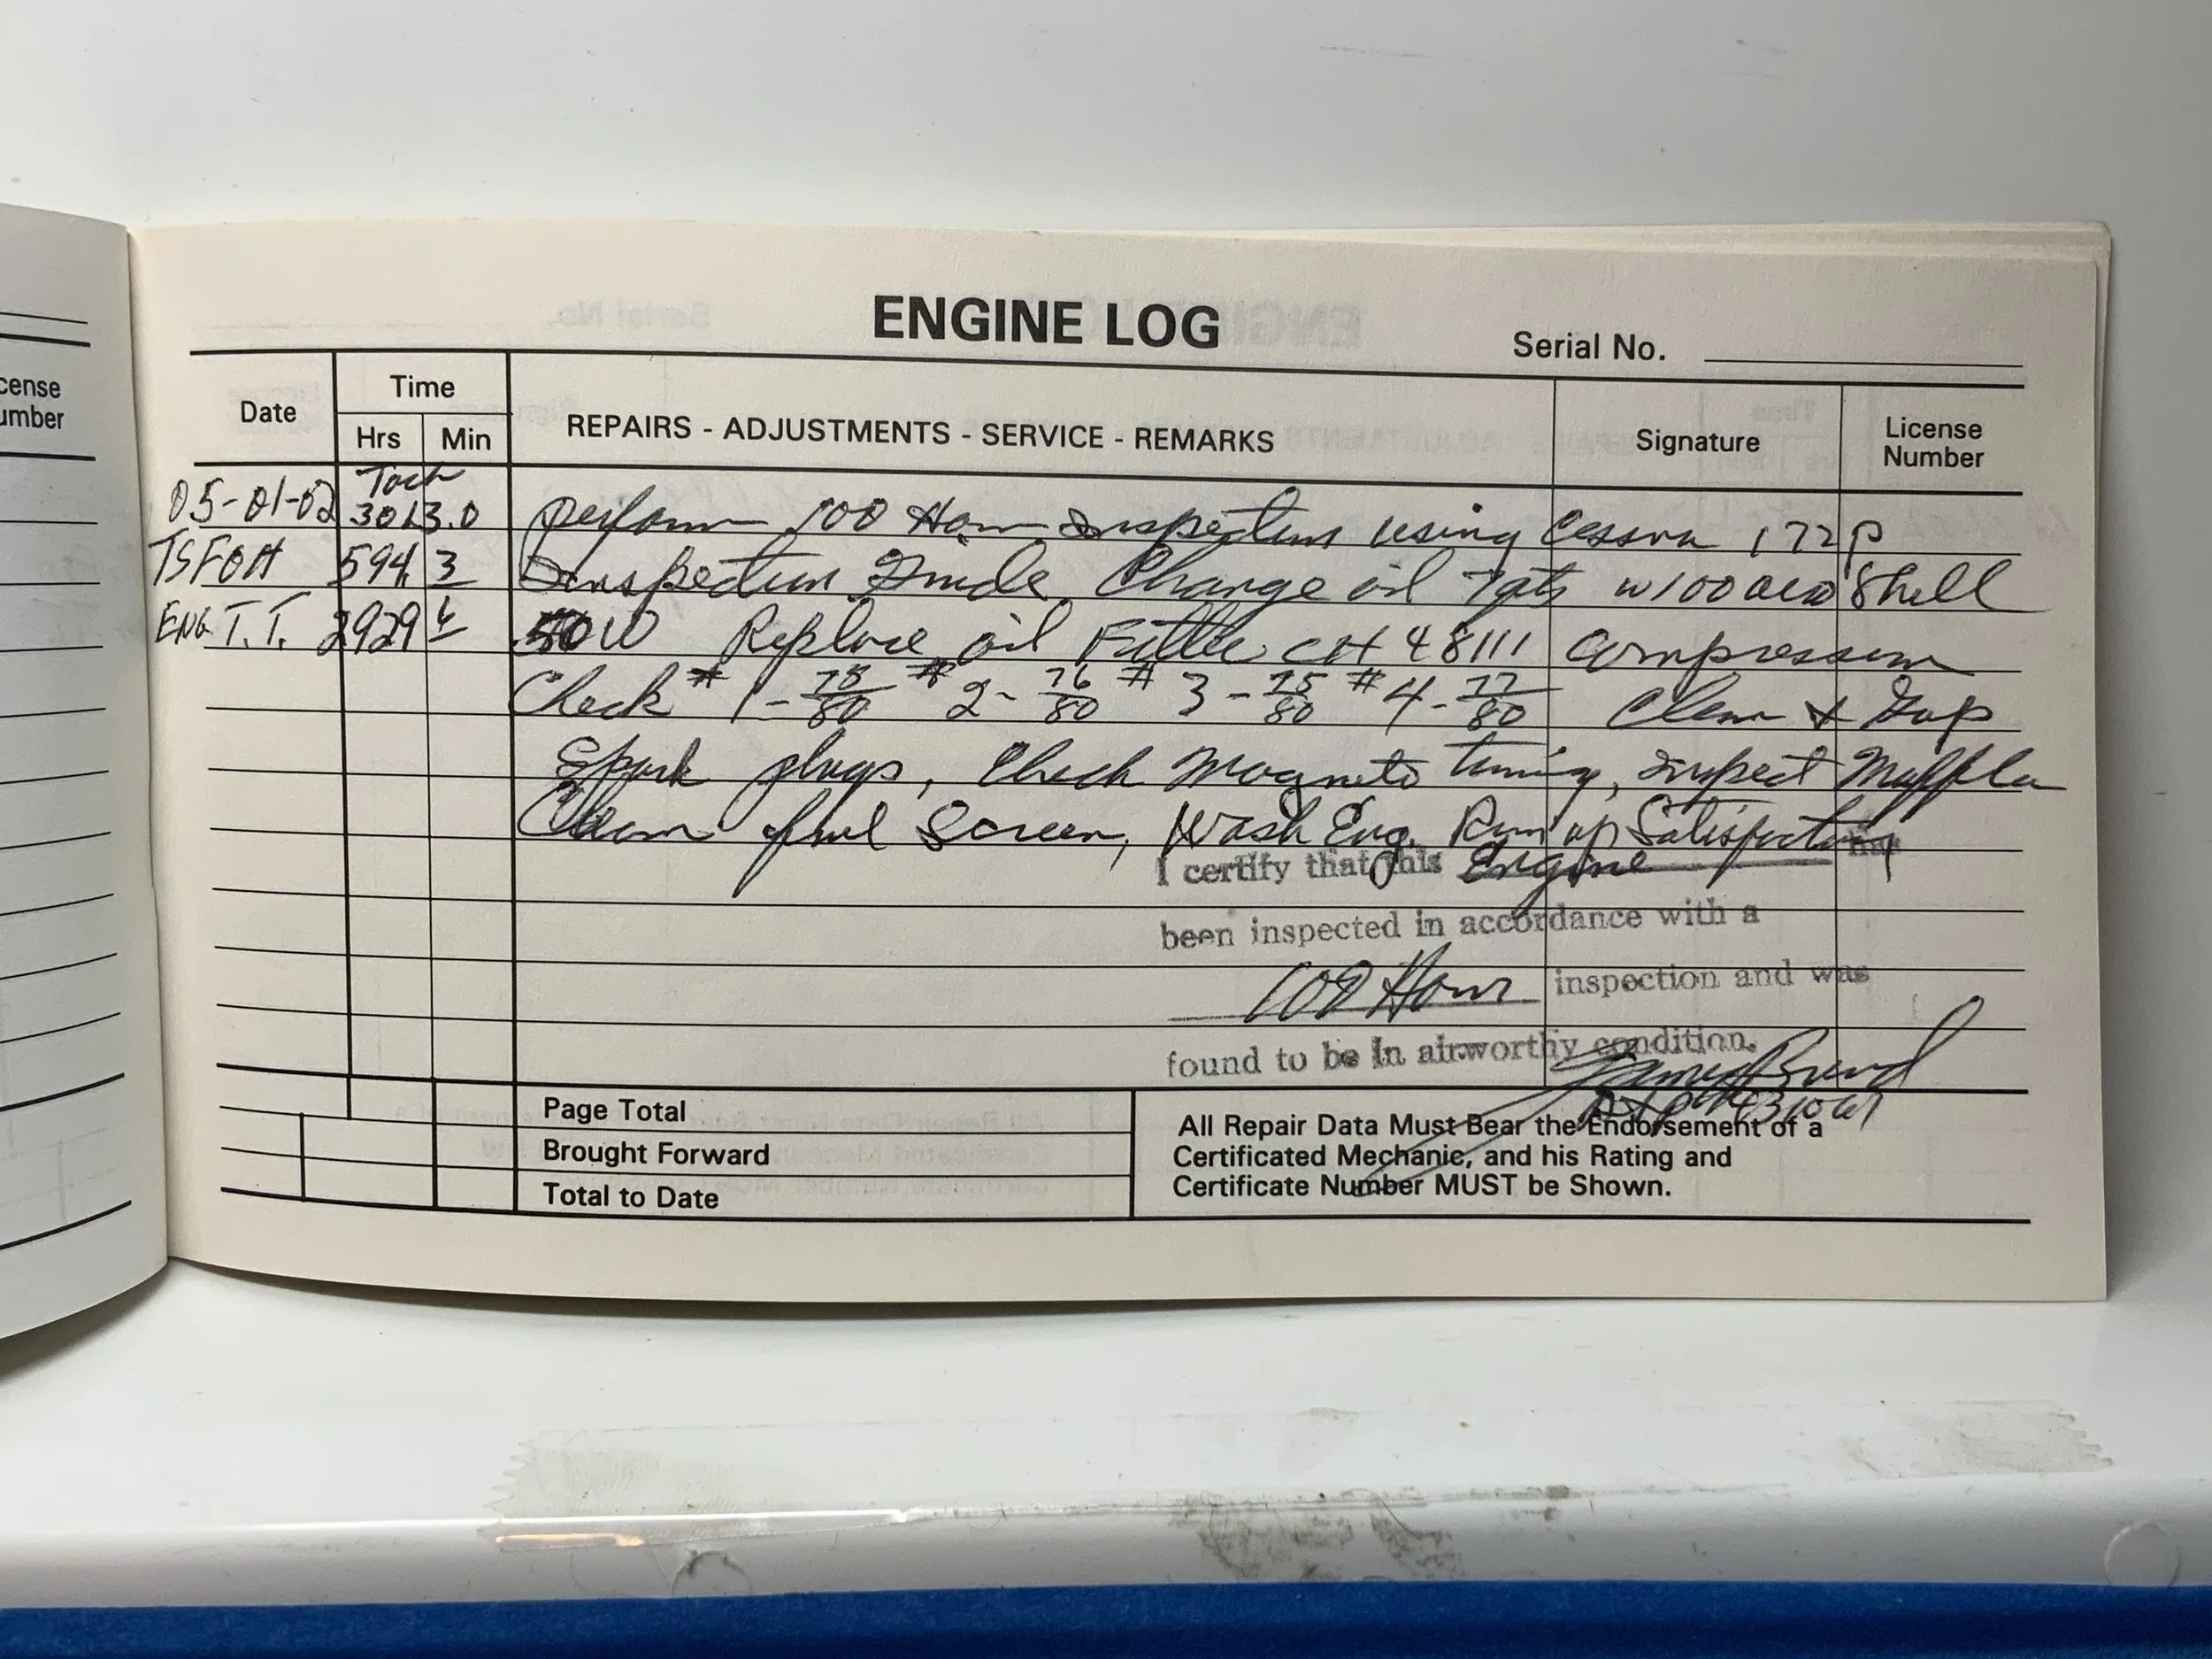 cense
umber
ENGINE LOG
Serial No.
Date
Time
Hrs
Min
REPAIRS - ADJUSTMENTS - SERVICE - REMARKS
Signature
License
Number
05-01-02 Tach 3013.0 Perform 100 Hour Inspection using Cessna 172P
TSFOH 594 3 Inspection Guide, Change oil 7qts W100 Shell
ENG T.T. 2929 6 50W Replace oil Filter CH48111 Compression
Check #1- 78/80 #2- 76/80 #3- 75/80 #4- 77/80 Clean & Gap
Spark plugs, Check Magneto timing, inspect Muffler
Clean fuel Screen, Wash Eng. Run up Satisfactory
I certify that this Engine has
been inspected in accordance with a
100 Hour inspection and was
found to be in airworthy condition.
A&P
Page Total
Brought Forward
Total to Date
All Repair Data Must Bear the Endorsement of a
Certificated Mechanic, and his Rating and
Certificate Number MUST be Shown.